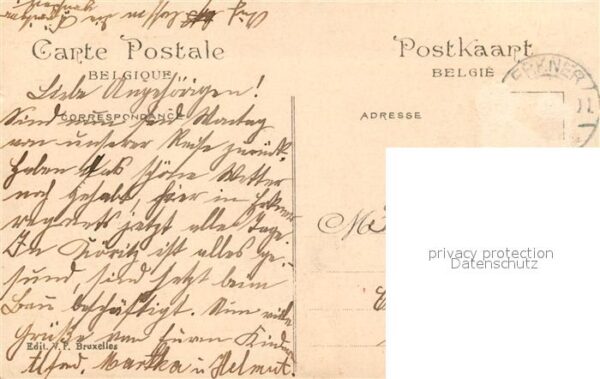 Carte Postale
BELGIQUE
CORRESPONDANCE
Postkaart
BELGIË
ADRESSE
ERKNER
Liebe Angehörigen!
Sind nun seid Montag
von unserer Reise zurück.
Haben das schöne Wetter
noch gehabt, hier in Erkner
regnets jetzt alle Tage.
In Köritz ist alles ge-
sund, sind jetzt beim
Bau beschäftigt. Nun viele
Grüße von Euren Kindern
Alfred, Martha u Helmut.
Edit. V. F. Bruxelles
privacy protection
Datenschutz